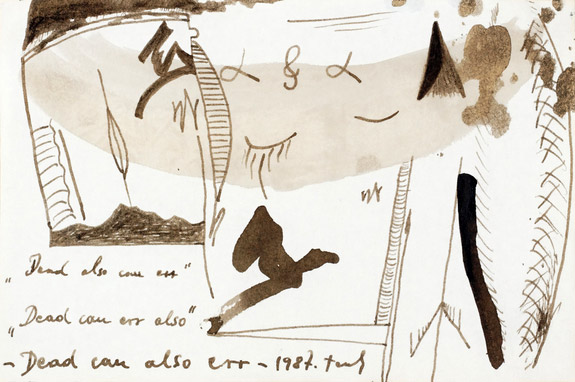 α & α
„Dead also can err"
„Dead can err also"
- Dead can also err - 1987. tuš